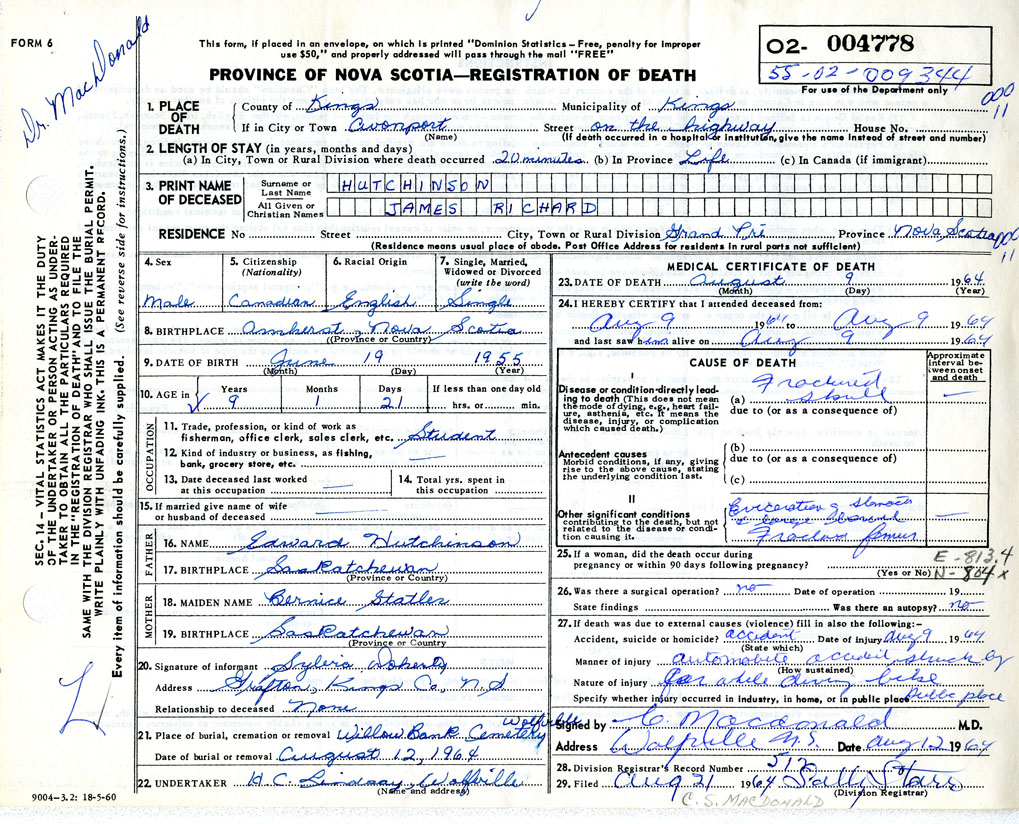 FORM 6
Dr. MacDonald
This form, if placed in an envelope, on which is printed "Dominion Statistics – Free, penalty for improper
use $50," and properly addressed will pass through the mail "FREE"
PROVINCE OF NOVA SCOTIA—REGISTRATION OF DEATH
O2- 004778
55-02-009344
For use of the Department only
000
11
SEC. 14 — VITAL STATISTICS ACT MAKES IT THE DUTY
OF THE UNDERTAKER OR PERSON ACTING AS UNDER-
TAKER TO OBTAIN ALL THE PARTICULARS REQUIRED
IN THE "REGISTRATION OF DEATH" AND TO FILE THE
SAME WITH THE DIVISION REGISTRAR WHO SHALL ISSUE THE BURIAL PERMIT.
WRITE PLAINLY WITH UNFADING INK. THIS IS A PERMANENT RECORD.
Every item of information should be carefully supplied. (See reverse side for instructions.)
1. PLACE OF DEATH
County of Kings Municipality of Kings
If in City or Town Avonport Street on the highway House No.
(Name) (If death occurred in hospital or institution, give the name instead of street and number)
2. LENGTH OF STAY (in years, months and days)
(a) In City, Town or Rural Division where death occurred 20 minutes (b) In Province Life (c) In Canada (if immigrant)
3. PRINT NAME OF DECEASED
Surname or Last Name HUTCHINSON
All Given or Christian Names JAMES RICHARD
RESIDENCE No Street City, Town or Rural Division Grand Pré Province Nova Scotia
(Residence means usual place of abode. Post Office Address for residents in rural parts not sufficient)
11
4. Sex
Male
5. Citizenship
(Nationality)
Canadian
6. Racial Origin
English
7. Single, Married,
Widowed or Divorced
(write the word)
Single
8. BIRTHPLACE Amherst, Nova Scotia
(Province or Country)
9. DATE OF BIRTH June 19 1955
(Month) (Day) (Year)
10. AGE in
Years Months Days If less than one day old
9 1 21 hrs. or min.
OCCUPATION
11. Trade, profession, or kind of work as
fisherman, office clerk, sales clerk, etc. Student
12. Kind of industry or business, as fishing,
bank, grocery store, etc. —
13. Date deceased last worked
at this occupation —
14. Total yrs. spent in
this occupation
15. If married give name of wife
or husband of deceased —
FATHER
16. NAME Edward Hutchinson
17. BIRTHPLACE Saskatchewan
(Province or Country)
MOTHER
18. MAIDEN NAME Bernice
19. BIRTHPLACE Saskatchewan
(Province or Country)
20. Signature of informant Sylvia Doherty
Address Grafton, Kings Co, N S
Relationship to deceased None
21. Place of burial, cremation or removal Willow Bank Cemetery Wolfville
Date of burial or removal August 12, 1964
22. UNDERTAKER H. C. Lindsay Wolfville
(Name and address)
9004—3.2: 18-5-60
MEDICAL CERTIFICATE OF DEATH
23. DATE OF DEATH August 9 19 64
(Month) (Day) (Year)
24. I HEREBY CERTIFY that I attended deceased from:
Aug 9 1964 to Aug 9 19 64
and last saw him alive on Aug 9 19 64
CAUSE OF DEATH
Approximate
interval be-
tween onset
and death
I
Disease or condition directly lead-
ing to death (This does not mean
the mode of dying, e.g., heart fail-
ure, asthenia, etc. It means the
disease, injury, or complication
which caused death.)
(a) Fractured Skull —
due to (or as a consequence of)
Antecedent causes
Morbid conditions, if any, giving
rise to the above cause, stating
the underlying condition last.
(b)
due to (or as a consequence of)
(c)
II
Other significant conditions
contributing to the death, but not
related to the disease or condi-
tion causing it.
Evisceration of Stomach
& large bowel —
Fracture femur
25. If a woman, did the death occur during
pregnancy or within 90 days following pregnancy?
(Yes or No)
E - 813.4
N - 804 x
26. Was there a surgical operation? no Date of operation 19
State findings Was there an autopsy? no
27. If death was due to external causes (violence) fill in also the following:-
Accident, suicide or homicide? accident Date of injury Aug 9 19 64
(State which)
Manner of injury automobile accident struck by
(How sustained)
Nature of injury car while bike
Specify whether injury occurred in industry, in home, or in public place Public place
Signed by C. Macdonald M.D.
Address Wolfville N.S. Date Aug 12 19 64
28. Division Registrar's Record Number 512
29. Filed Aug 21 1964 Sally Starr
(Division Registrar)
C. S. MACDONALD